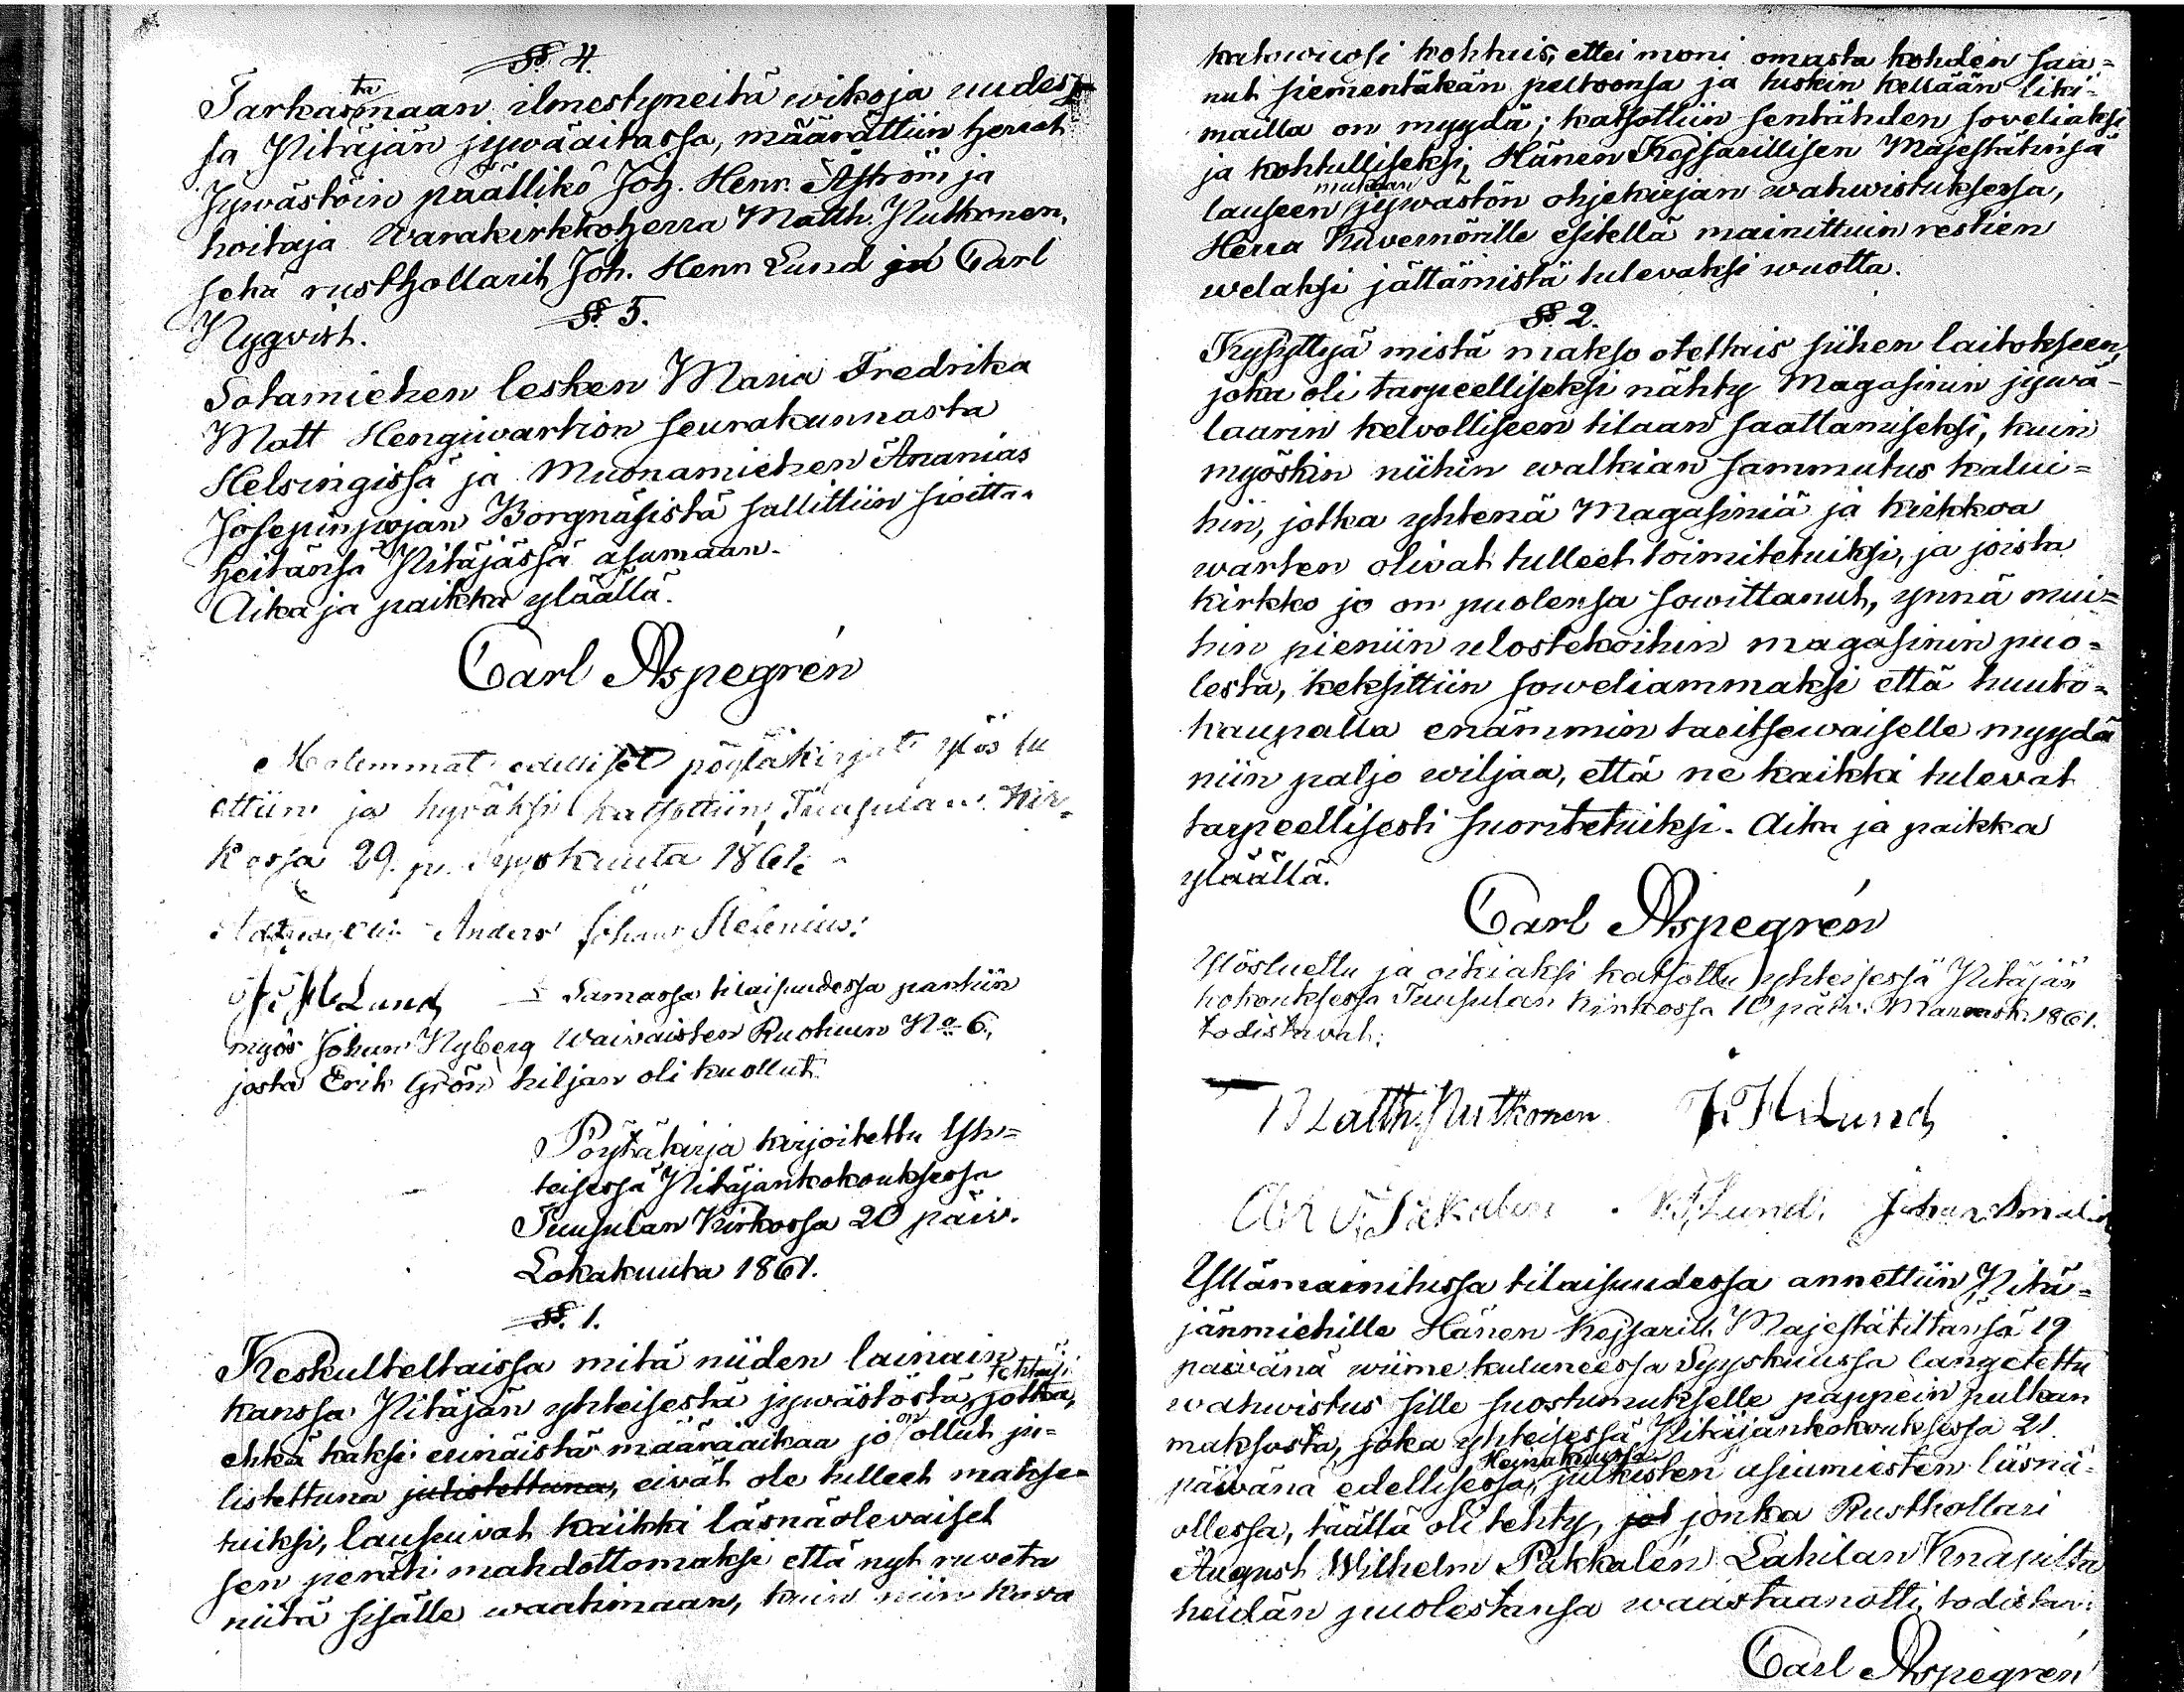 § 4.
Tarkastamaan ilmestyneitä wikoja uudes
sa Pitäjän jywäaitassa, määrättiin Herrat
Jywästöin päällikö Joh. Henr. Åström ja
hoitaja Warakirkkoherra Matth. Putkonen,
sekä rusthollarit Joh. Henr Lund ja Carl
Nyqvist.
§. 5.
Sotamiehen lesken Maria Fredrika
Matt Hengiwartion seurakunnasta
Helsingissä ja Muonamiehen Ananias
Josepinpojan Borgnäsistä sallittiin sioitta-
heitänsä Pitäjässä asumaan.
Aika ja paikka ylääällä.
Carl Aspegrén
Molemmat edelliset pöytäkirjat ylös lu
ettiin ja hyväksi katsottiin, Tuusulan Kir-
kossa 29. p. Syyskuuta 1861.
Anders Johan Helenius.
J. H. Lund
§ Samassa tilaisuudessa pantiin
myös Johan Nyberg Waivaisten Ruotuun No 6,
josta Erik Grön hiljan oli kuollut.
Pöytäkirja kirjoitettu Yh-
teisessä Pitäjänkokouksessa
Tuusulan Kirkossa 20 päiv.
Lokakuuta 1861.
§. 1.
Keskulteltaissa mitä niiden lainain
tehtäisi
kanssa Pitäjän yhteisestä jywästöstä, jotka,
ehkä kaksi erinäistä määräaikaa jo on ollut ju-
listettuna julistettuna, eivät ole tulleet makse-
tuiksi, lausuivat kaikki läsnäolevaiset
sen peräti mahdottomaksi että nyt ruveta
niitä sisälle waatimaan, kuin niin kova
katowuosi kohtais, ettei moni omasta kohden saa-
nut siementäkän peltoonsa ja tuskin kellään liki-
mailla on myydä; katsottiin sentähden soveliaksi
ja kohtulliseksi, Hänen Kejsarillisen Majestätinsä
mukaan
lauseen jywästön ohjekirjan wahwistuksessa,
Herra Kuvernörille esitellä mainittuin restien
welaksi jättämistä tulevaksi wuotta.
§. 2.
Kysyttyä mistä makso otettais siihen laitokseen,
joka oli tarpeelliseksi nähty Magasinin jywä-
laarin kelvolliseen tilaan saattamiseksi, kuin
myöskin niihin walkian sammutus kalui-
hin, jotka yhtenä Magasiniä ja kirkkoa
warten olivat tulleet toimitetuiksi, ja joista
kirkko jo on puolensa sowittanut, ynnä mui-
hin pieniin ulostekoihin magasinin puo-
lesta, keksittiin soweliammaksi että huuto-
kaupalla enämmin taritsewaiselle myydä
niin paljo wiljaa, että ne kaikki tulevat
tarpeellisesti suoritetuiksi. Aika ja paikka
ylääällä.
Carl Aspegrén
Ylösluettu ja oikiaksi katsottu yhteisessä Pitäjän
kokouksessa Tuusulan Kirkossa 10 päiv. Marrask. 1861.
todistavat:
Matth. Putkonen J. H. Lund
Lund. Johan
Yllämainitussa tilaisuudessa annettiin Pitä-
jänmiehille Hänen Kejsarill. Majestätiltänsä 19
päivänä wiime kuluneessa Syyskuussa langetettu
wahwistus sille suostumukselle pappein palkan
maksosta, joka yhteisessä Pitäjänkokouksessa 21.
Heinäkuussa
päivänä edellisessä, julkisten asiamiesten läsnä-
ollessa, täällä oli tehty, jot jonka Rusthollari
August Wilhelm Pakkalén Lahilan Knapilta
heidän puolestansa waastaanotti, todistan:
Carl Aspegrén